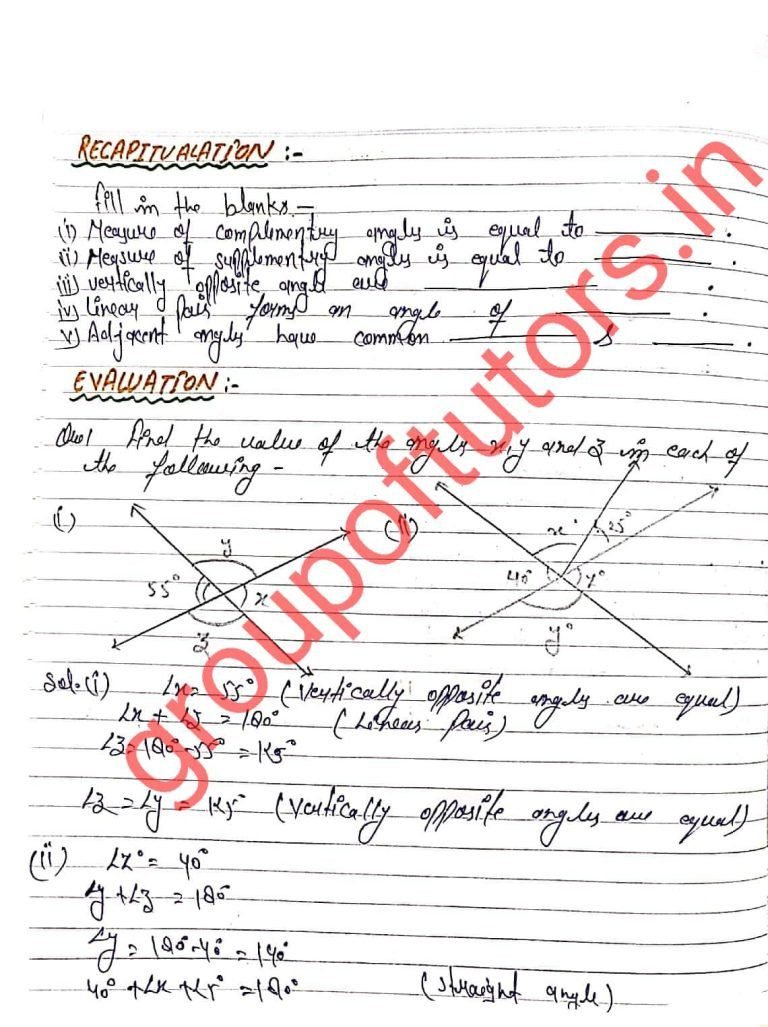 RECAPITUALATION :-
Fill in the blanks.-
(i) Measure of complementry angles is equal to ________ .
(ii) Measure of supplementry angles is equal to ________ .
(iii) vertically opposite angle are ________ .
iv) linear pair forms an angle of ________ .
v) Adjacent angles have common ________ & ________ .
EVALUATION :-
Que1 Find the value of the angles x, y and z in each of
the following -
(i)
y
55°
x
z
(ii)
x°
25°
40°
z°
y°
Sol. (i) ∠x = 55° (Vertically opposite angles are equal)
∠x + ∠z = 180° (Linear Pair)
∠z = 180° - 55° = 125°
∠z = ∠y = 125° (Vertically opposite angles are equal)
(ii) ∠z° = 40°
∠y + ∠z = 180°
∠y = 180° - 40° = 140°
40° + ∠x + 25° = 180° (straight angle)
groupoftutors.in